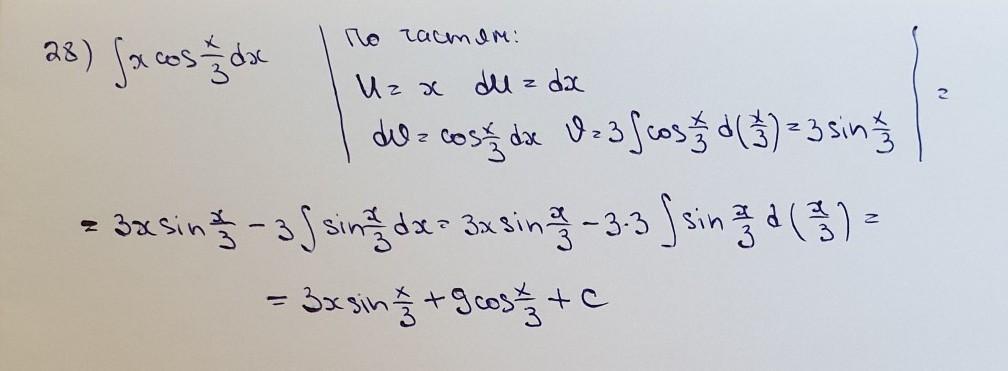 28) ∫x cos x/3 dx | По частям:
u = x du = dx
dv = cos x/3 dx v = 3∫cos x/3 d(x/3) = 3 sin x/3 | =
= 3x sin x/3 − 3∫sin x/3 dx = 3x sin x/3 − 3·3 ∫sin x/3 d(x/3) =
= 3x sin x/3 + 9cos x/3 + C